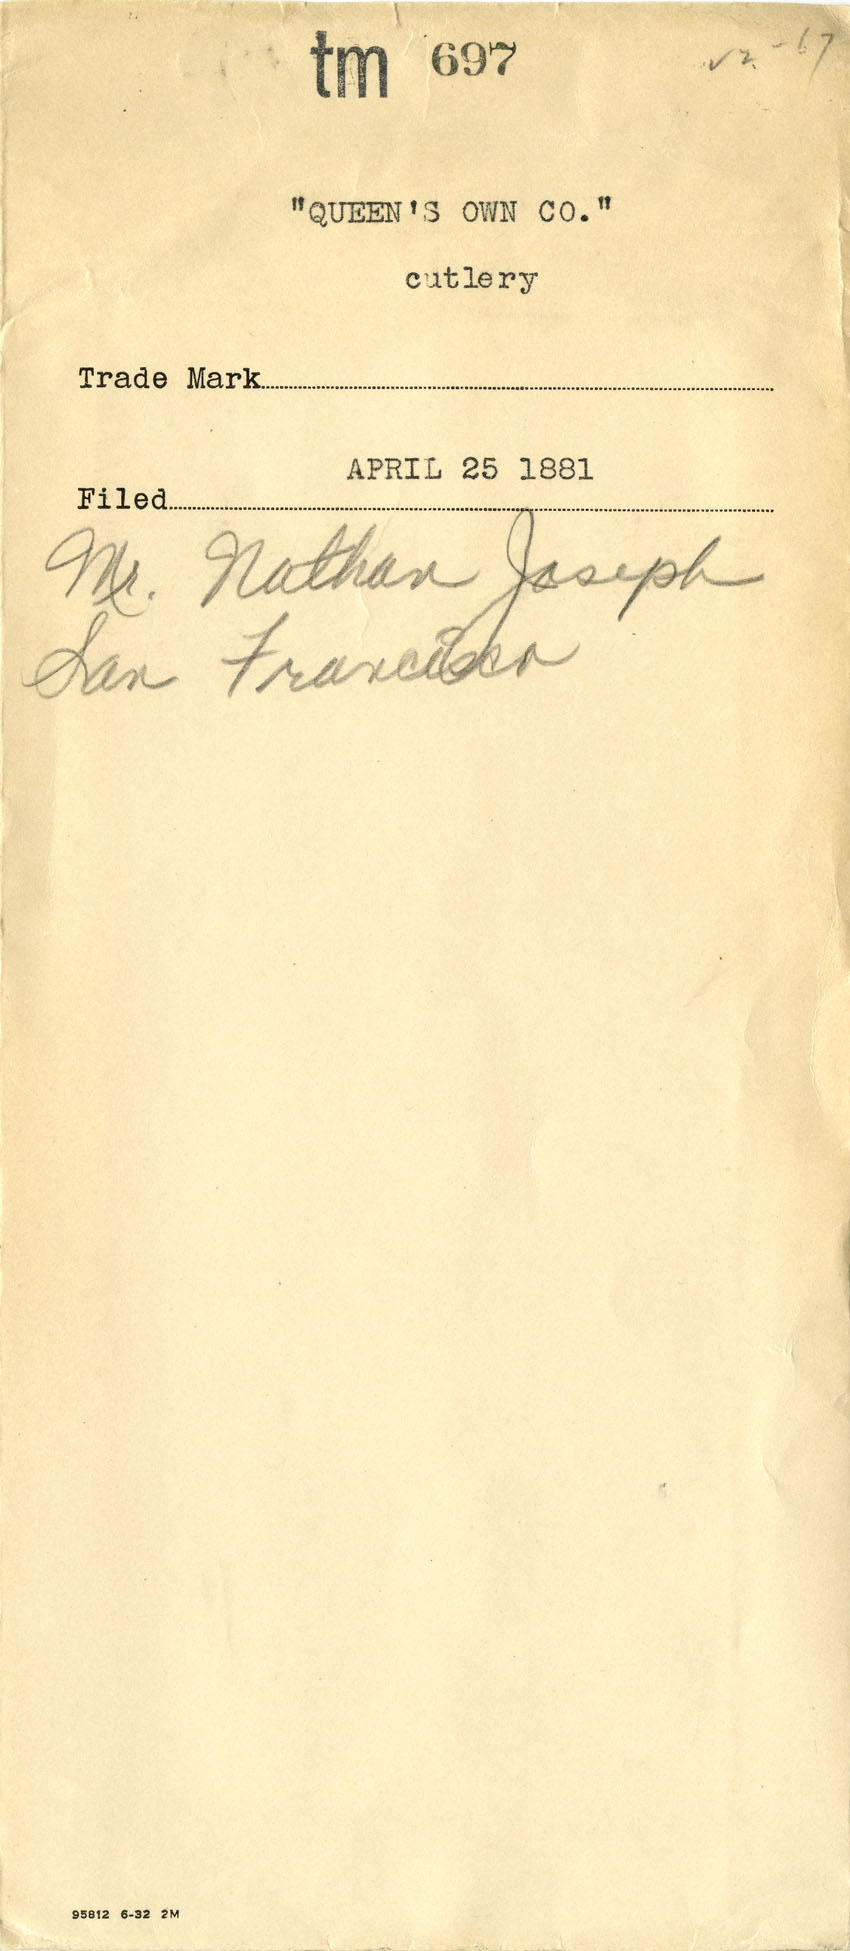 tm 697
"QUEEN'S OWN CO."
cutlery
Trade Mark
APRIL 25 1881
Filed
Mr. Nathan Joseph
San Francisco
95812 6-32 2M